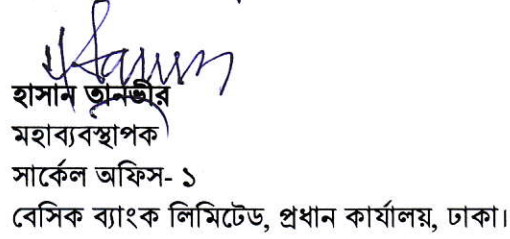 হাসান তানভীর
মহাব্যবস্থাপক
সার্কেল অফিস- ১
বেসিক ব্যাংক লিমিটেড, প্রধান কার্যালয়, ঢাকা।